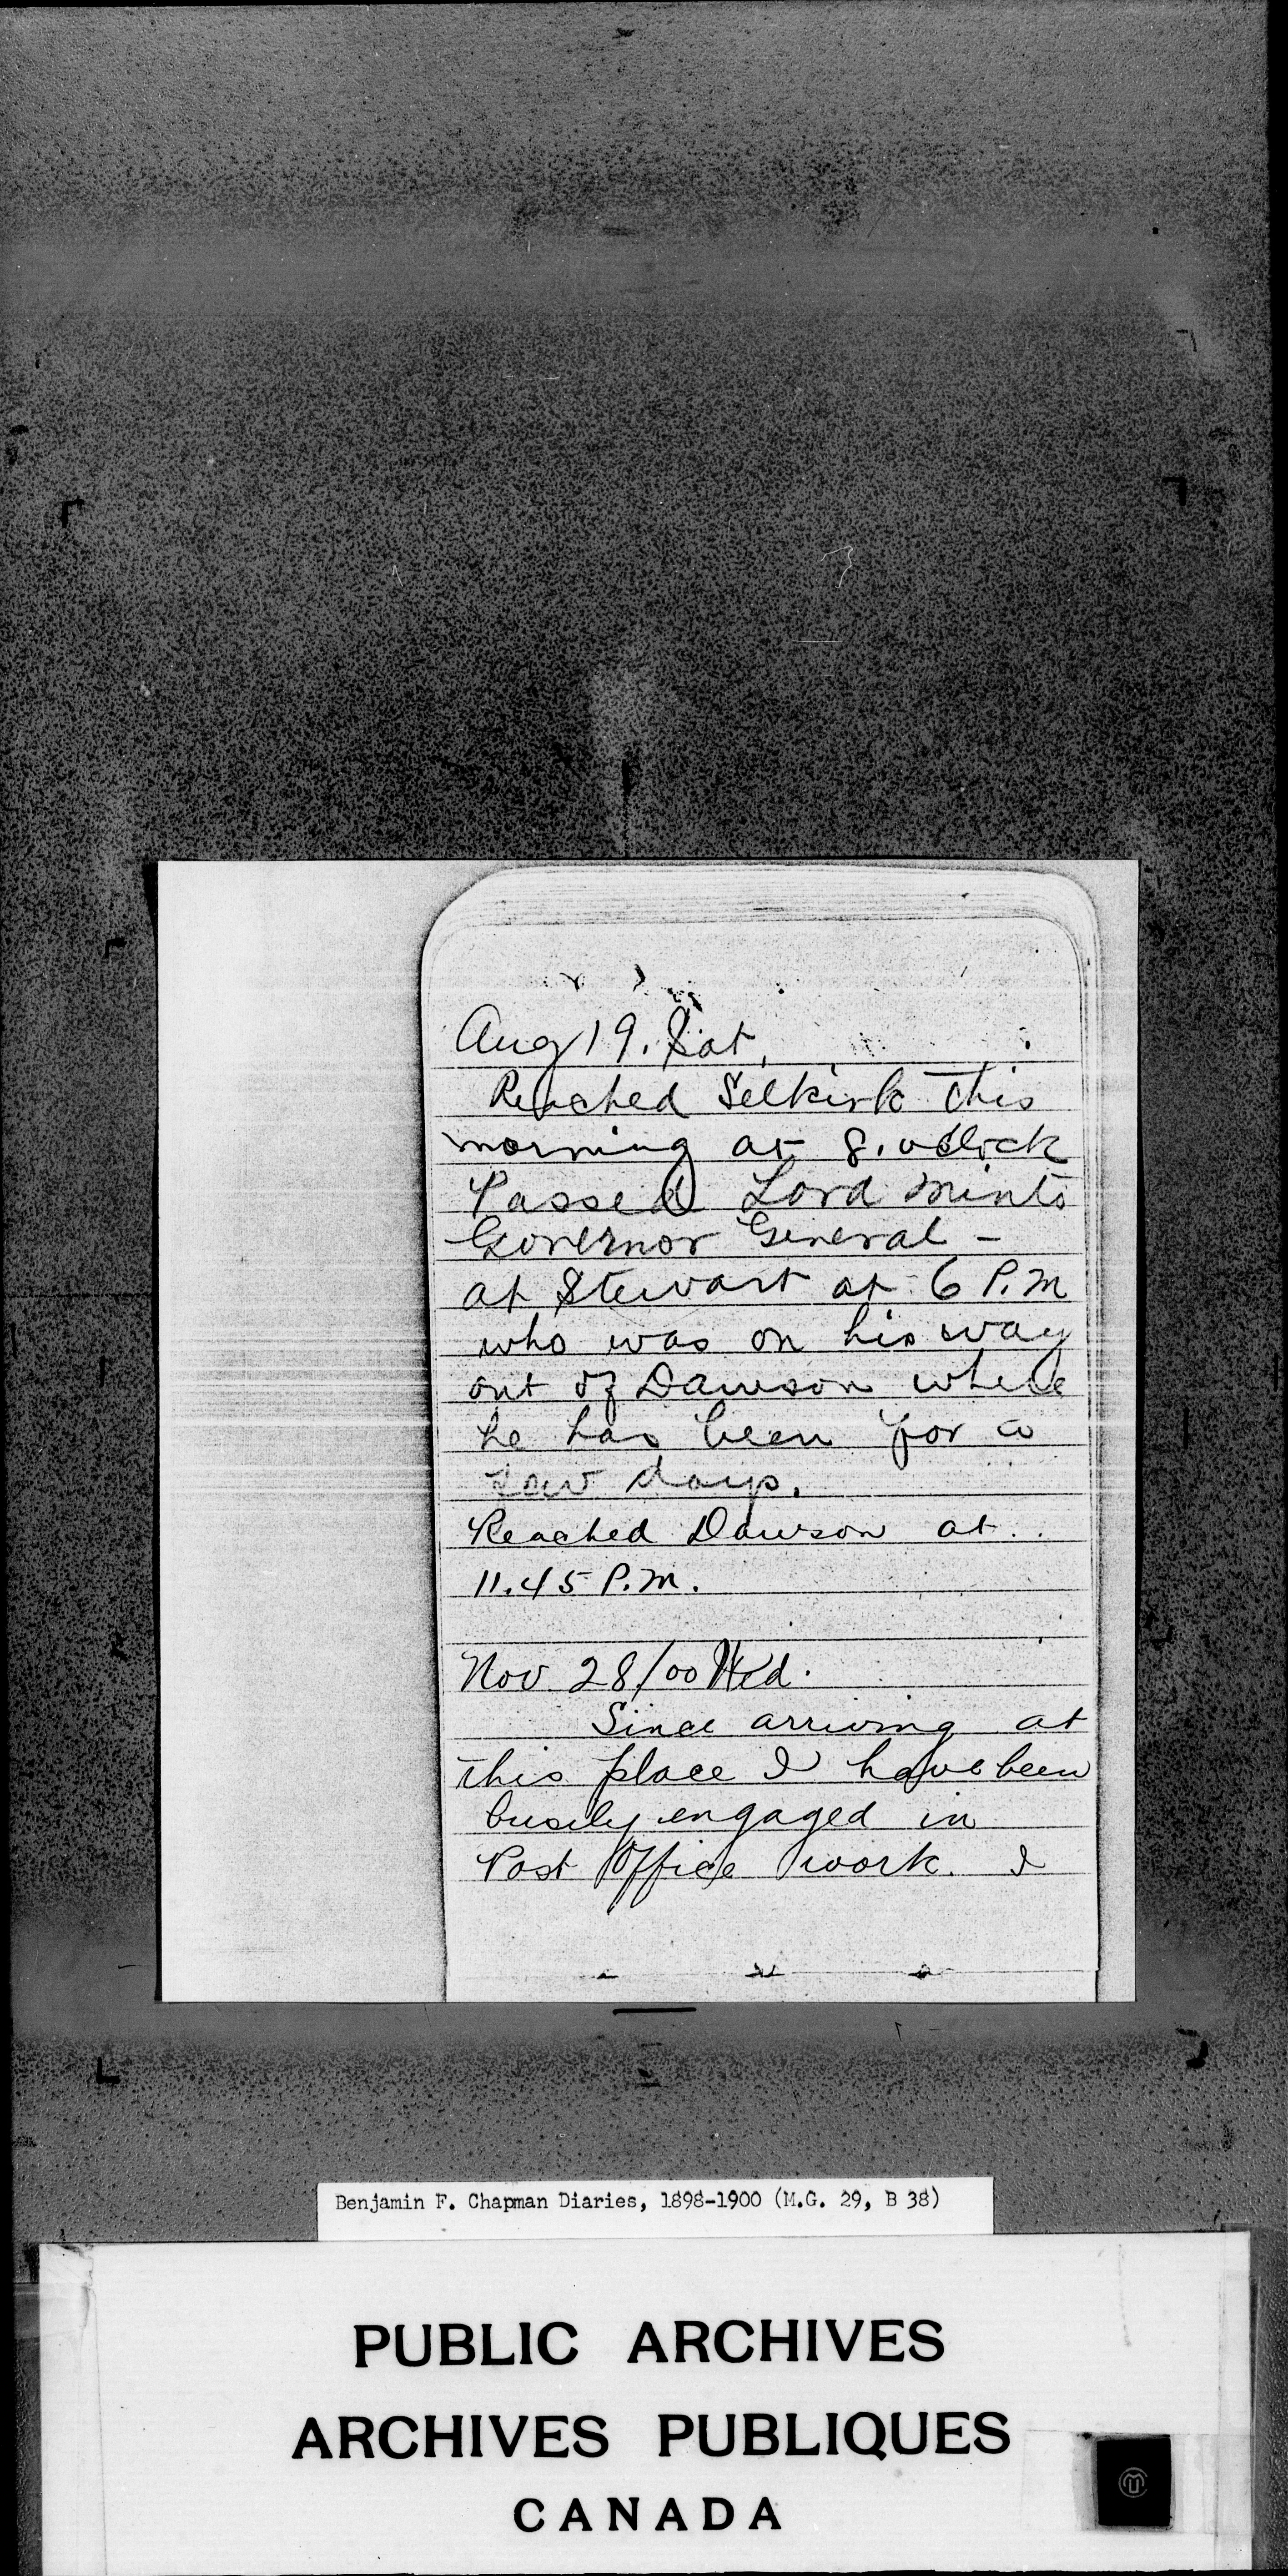 Aug 19. Sat,
Reached Selkirk this
morning at 8. oclock
Passed Lord Minto
Governor General -
at Stewart at 6 P.M
who was on his way
out of Dawson where
he has been for a
few days.
Reached Dawson at
11.45 P.M.
Nov 28/00 Wed.
Since arriving at
this place I have been
busily engaged in
Post Office work. I
Benjamin F. Chapman Diaries, 1898-1900 (M.G. 29, B 38)
PUBLIC ARCHIVES
ARCHIVES PUBLIQUES
CANADA